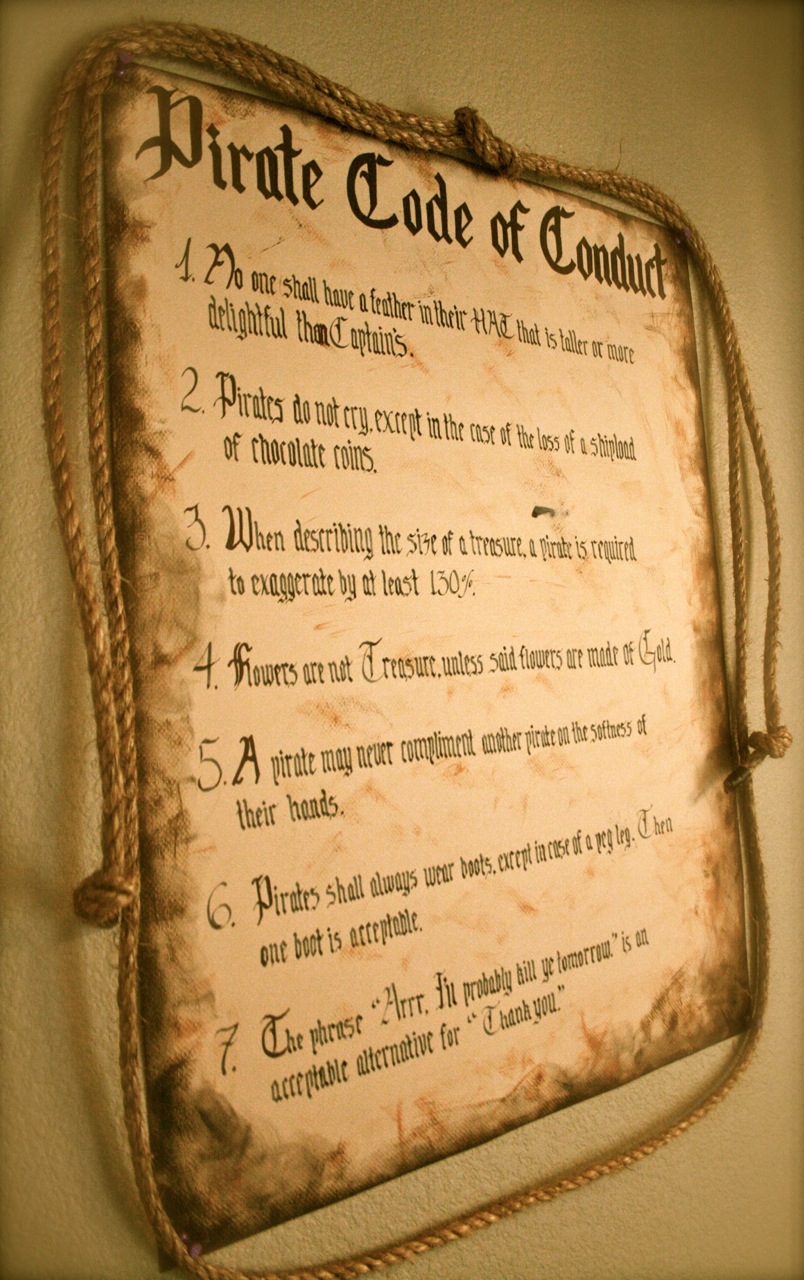 Pirate Code of Conduct
1. No one shall have a feather in their HAT that is taller or more
delightful than Captain's.
2. Pirates do not cry, except in the case of the loss of a shipload
of chocolate coins.
3. When describing the size of a treasure, a pirate is required
to exaggerate by at least 130%.
4. Flowers are not Treasure, unless said flowers are made of Gold.
5. A pirate may never compliment another pirate on the softness of
their hands.
6. Pirates shall always wear boots, except in case of a peg leg. Then
one boot is acceptable.
7. The phrase "Arrr, I'll probably kill ye tomorrow." is an
acceptable alternative for "Thank you."